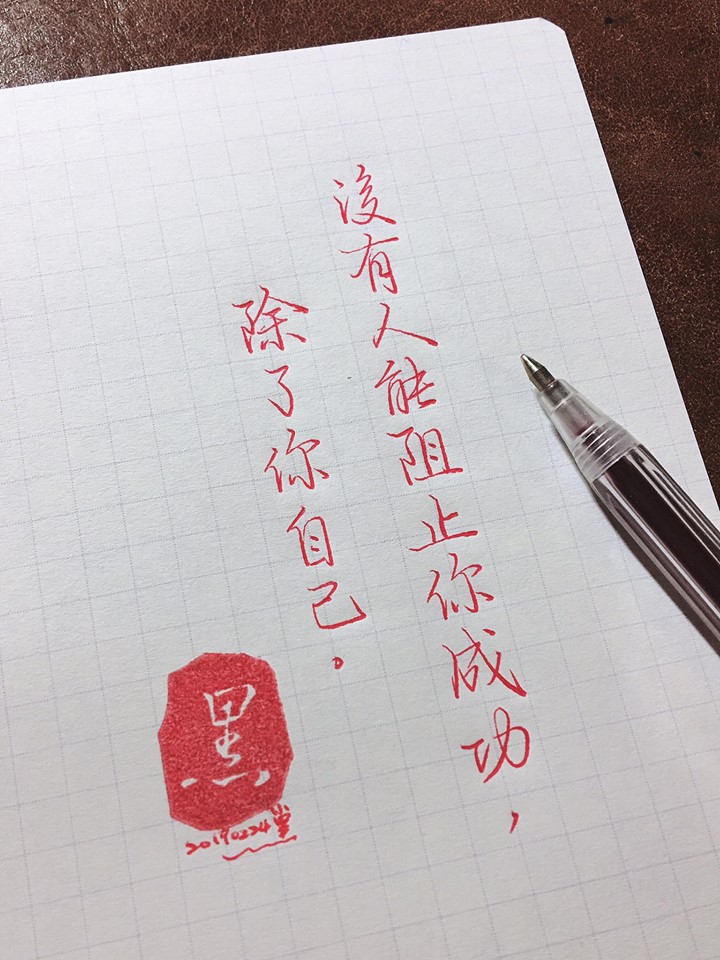 沒有人能阻止你成功，
除了你自己。
黑
20190224